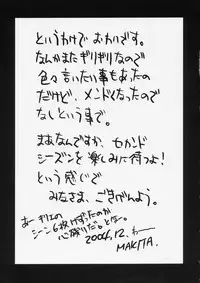 というわけで おわりです。
なんかまたギリギリなので
色々言いたい事もあったの
だけど、メンドくなったので
なしという事で。
まあなんですか、セカンド
シーズンを楽しみに待つよ!
という感じで
みなさま、ごきげんよう。
あーギリエの
シーン6枚けずったのが
心残りだ。とな。
2004.12.
MAKITA.